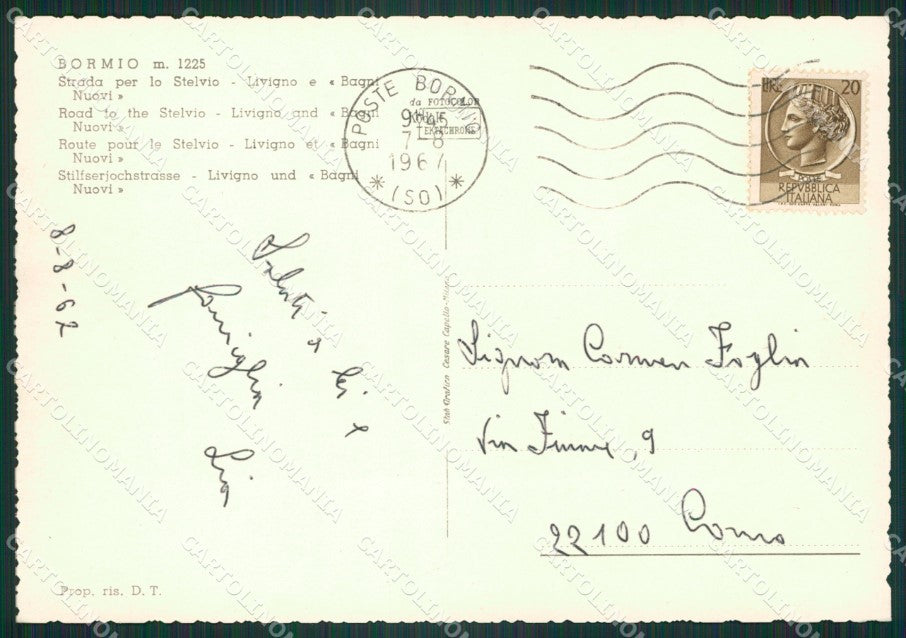 BORMIO m. 1225
Strada per lo Stelvio - Livigno e « Bagni
Nuovi »
Road to the Stelvio - Livigno and « Bagni
Nuovi »
Route pour le Stelvio - Livigno et « Bagni
Nuovi »
Stilfserjochstrasse - Livigno und « Bagni
Nuovi »
da FOTOCOLOR
KODAK
EKTACHROME
POSTE BORMIO
7-8
1967
(SO)
LIRE 20
REPVBBLICA
ITALIANA
8-8-67
Saluti a Lei e
famiglia
Lia
Stab. Grafico Cesare Capello - Milano
Signora Carmen Foglia
Via Fiume, 9
22100 Como
Prop. ris. D. T.
CARTOLINOMANIA